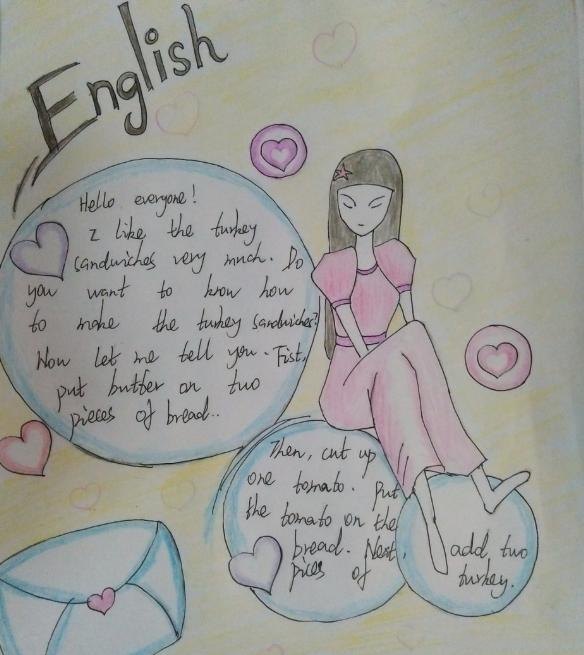 English
Hello everyone!
I like the turkey
sandwiches very much. Do
you want to know how
to make the turkey sandwiches?
Now let me tell you. Fist,
put butter on two
pieces of bread..
Then, cut up
one tomato. Put
the tomato on the
bread. Next,
add two
pices of
turkey.